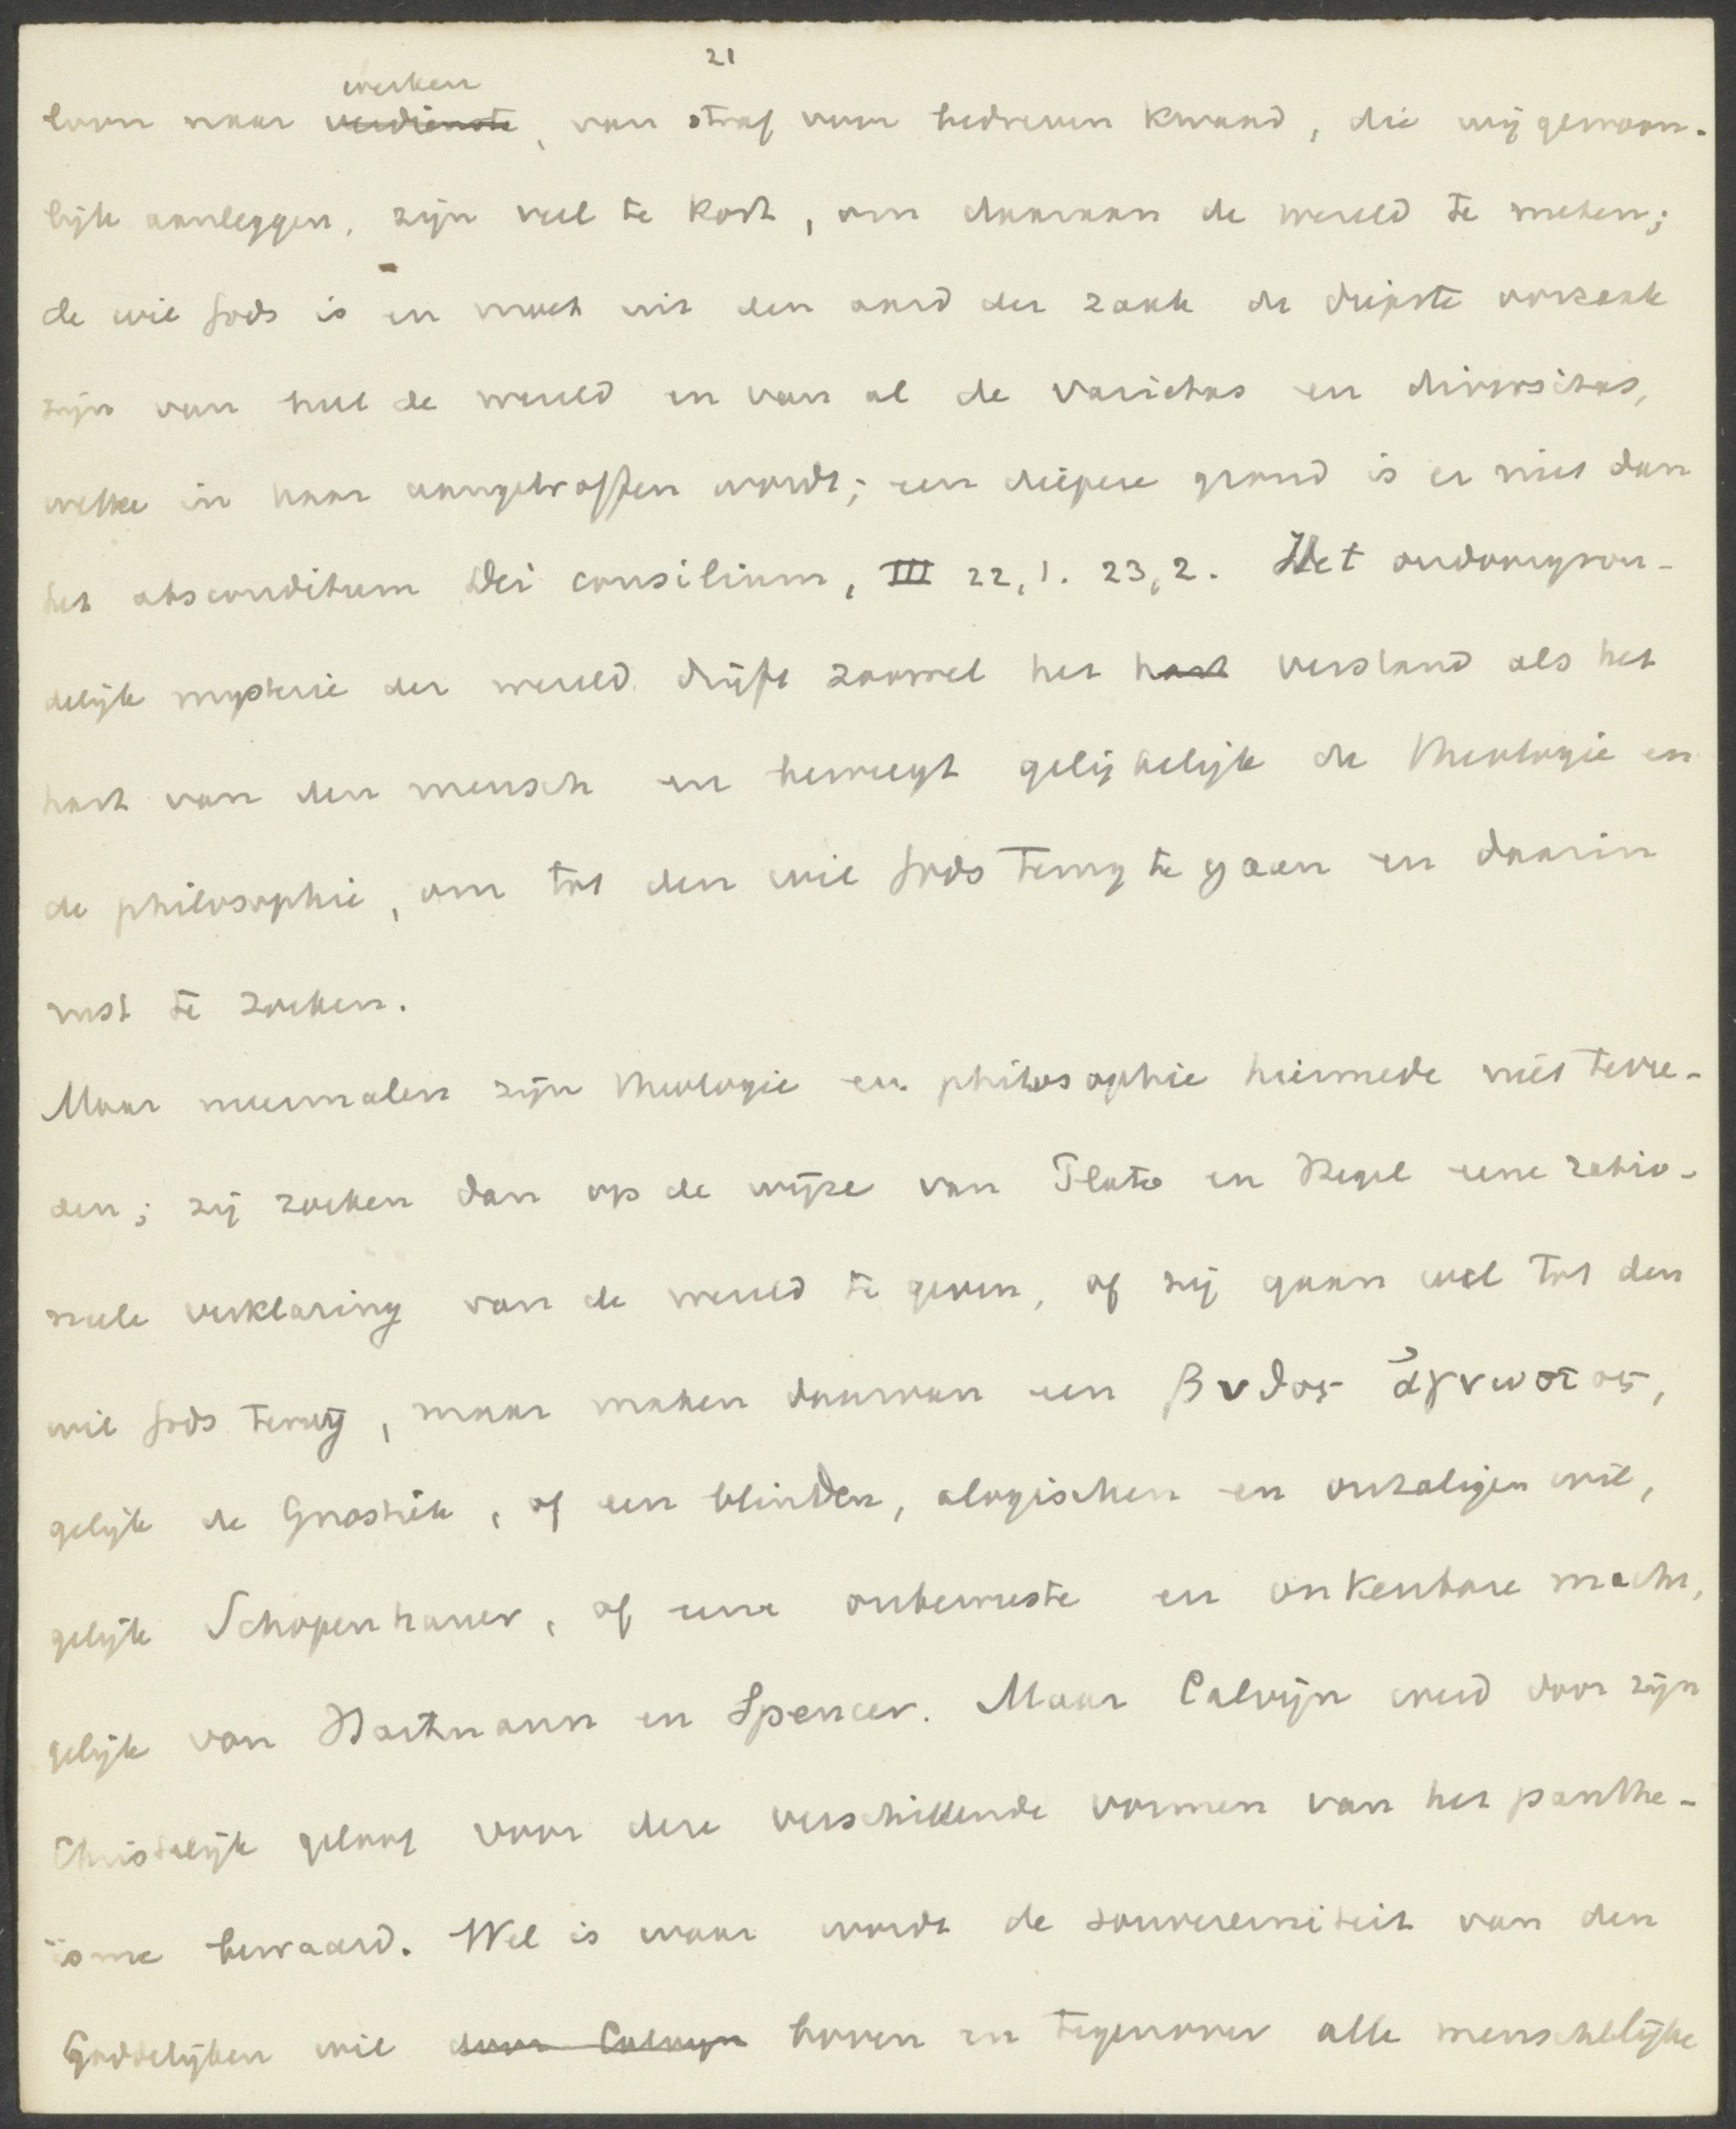 21
werken
loon naar verdienste, van straf voor bedreven kwaad, die wij gewoon-
lijk aanleggen, zijn veel te kort, om daaraan de wereld te meten;
de wil Gods is en moet uit den aard der zaak de diepste oorzaak
zijn van heel de wereld en van al de varietas en diversitas,
welke in haar aangetroffen wordt; een diepere grond is er niet dan
het absconditum Dei consilium, III 22,1. 23,2. Het ondoorgron-
delijk mysterie der wereld drijft zoowel het hart verstand als het
hart van den mensch en beweegt gelijkelijk de theologie en
de philosophie, om tot den wil Gods terug te gaan en daarin
rust te zoeken.
Maar meermalen zijn theologie en philosophie hiermede niet tevre-
den; zij zoeken dan op de wijze van Plato en Hegel eene ratio-
neele verklaring van de wereld te geven, of zij gaan wel tot den
wil Gods terug, maar maken daarvan een βυθος ἀγνωστος,
gelijk de Gnostiek, of een blinden, alogischen en onzaligen wil,
gelijk Schopenhauer, of eene onbewuste en onkenbare macht,
gelijk von Hartmann en Spencer. Maar Calvijn werd door zijn
Christelijk geloof voor deze verschillende vormen van het panthe-
isme bewaard. Wel is waar wordt de souvereiniteit van den
Goddelijken wil door Calvijn boven en tegenover alle menschelijke